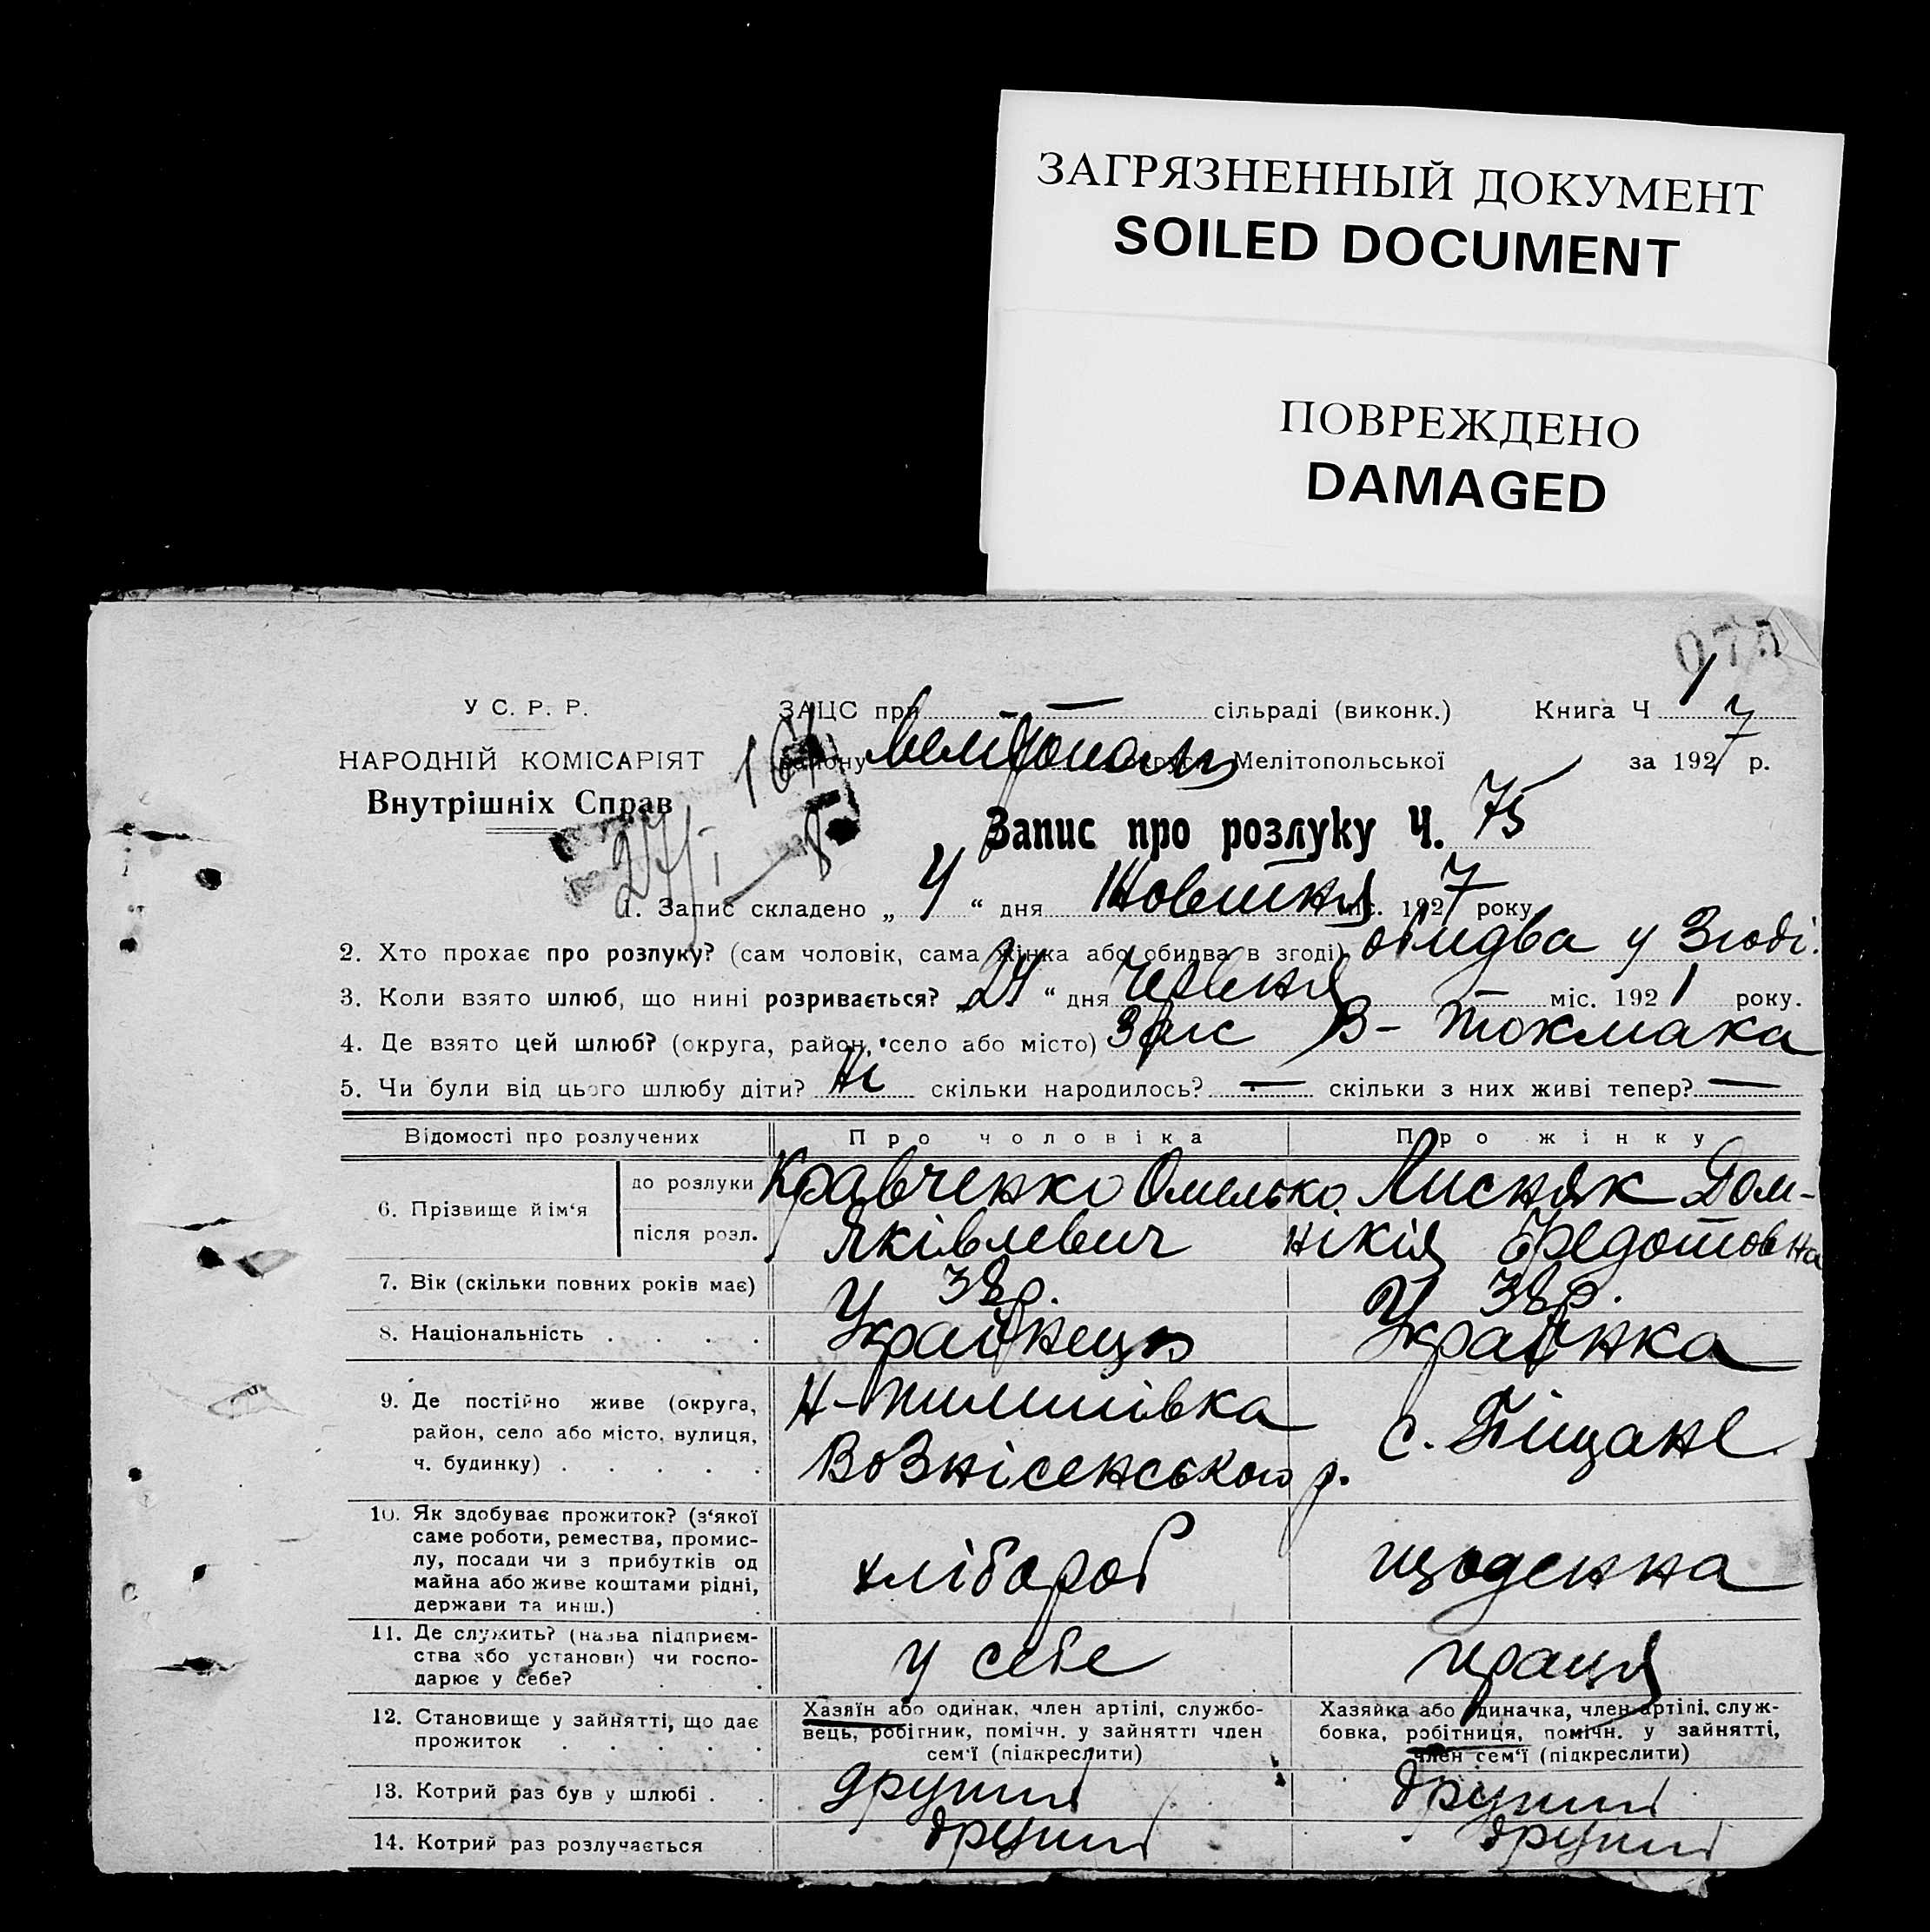 ЗАГРЯЗНЕННЫЙ ДОКУМЕНТ
SOILED DOCUMENT
ПОВРЕЖДЕНО
DAMAGED
У С. Р. Р.
НАРОДНІЙ КОМІСАРІЯТ
Внутрішніх Справ
ЗАЦС при — сільраді (виконк.) Книга Ч 1
району Мелітополь Мелітопольської за 1927 р.
Запис про розлуку Ч. 75
1. Запис складено „ 4 “ дня Жовтня міс. 1927 року
2. Хто прохає про розлуку? (сам чоловік, сама жінка або обидва в згоді) обидва у згоді.
3. Коли взято шлюб, що нині розривається? 24 “ дня Червня міс. 1921 року.
4. Де взято цей шлюб? (округа, район, село або місто) В-Токмака
5. Чи були від цього шлюбу діти? Ні скільки народилось? — скільки з них живі тепер? —
Відомості про розлучених Про чоловіка Про жінку
6. Прізвище й ім‘я до розлуки Кравченко Омелько Лисняк Дом-
після розл. Яківлевич нікія Федотовна
7. Вік (скільки повних років має) 38 р. 38 р.
8. Національність . . . . Українець Українка
9. Де постійно живе (округа, район, село або місто, вулиця, ч. будинку) . . . . .
Н-Пилипівка
Вознісенського р.
с. Піщане
10. Як здобуває прожиток? (з‘якої
саме роботи, ремества, промис-
лу, посади чи з прибутків од
майна або живе коштами рідні,
держави та инш.)
хлібороб щоденна
11. Де служить? (назва підприєм-
ства або установи) чи госпо-
дарює у себе?
у себе праця
12. Становище у зайнятті, що дає
прожиток . . . . .
Хазяїн або одинак, член артілі, службо-
вець, робітник, помічн. у зайнятті член
сем‘ї (підкреслити)
Хазяйка або одиначка, член артілі, служ-
бовка, робітниця, помічн. у зайнятті,
член сем‘ї (підкреслити)
13. Котрий раз був у шлюбі . . другий другий
14. Котрий раз розлучається другий другий